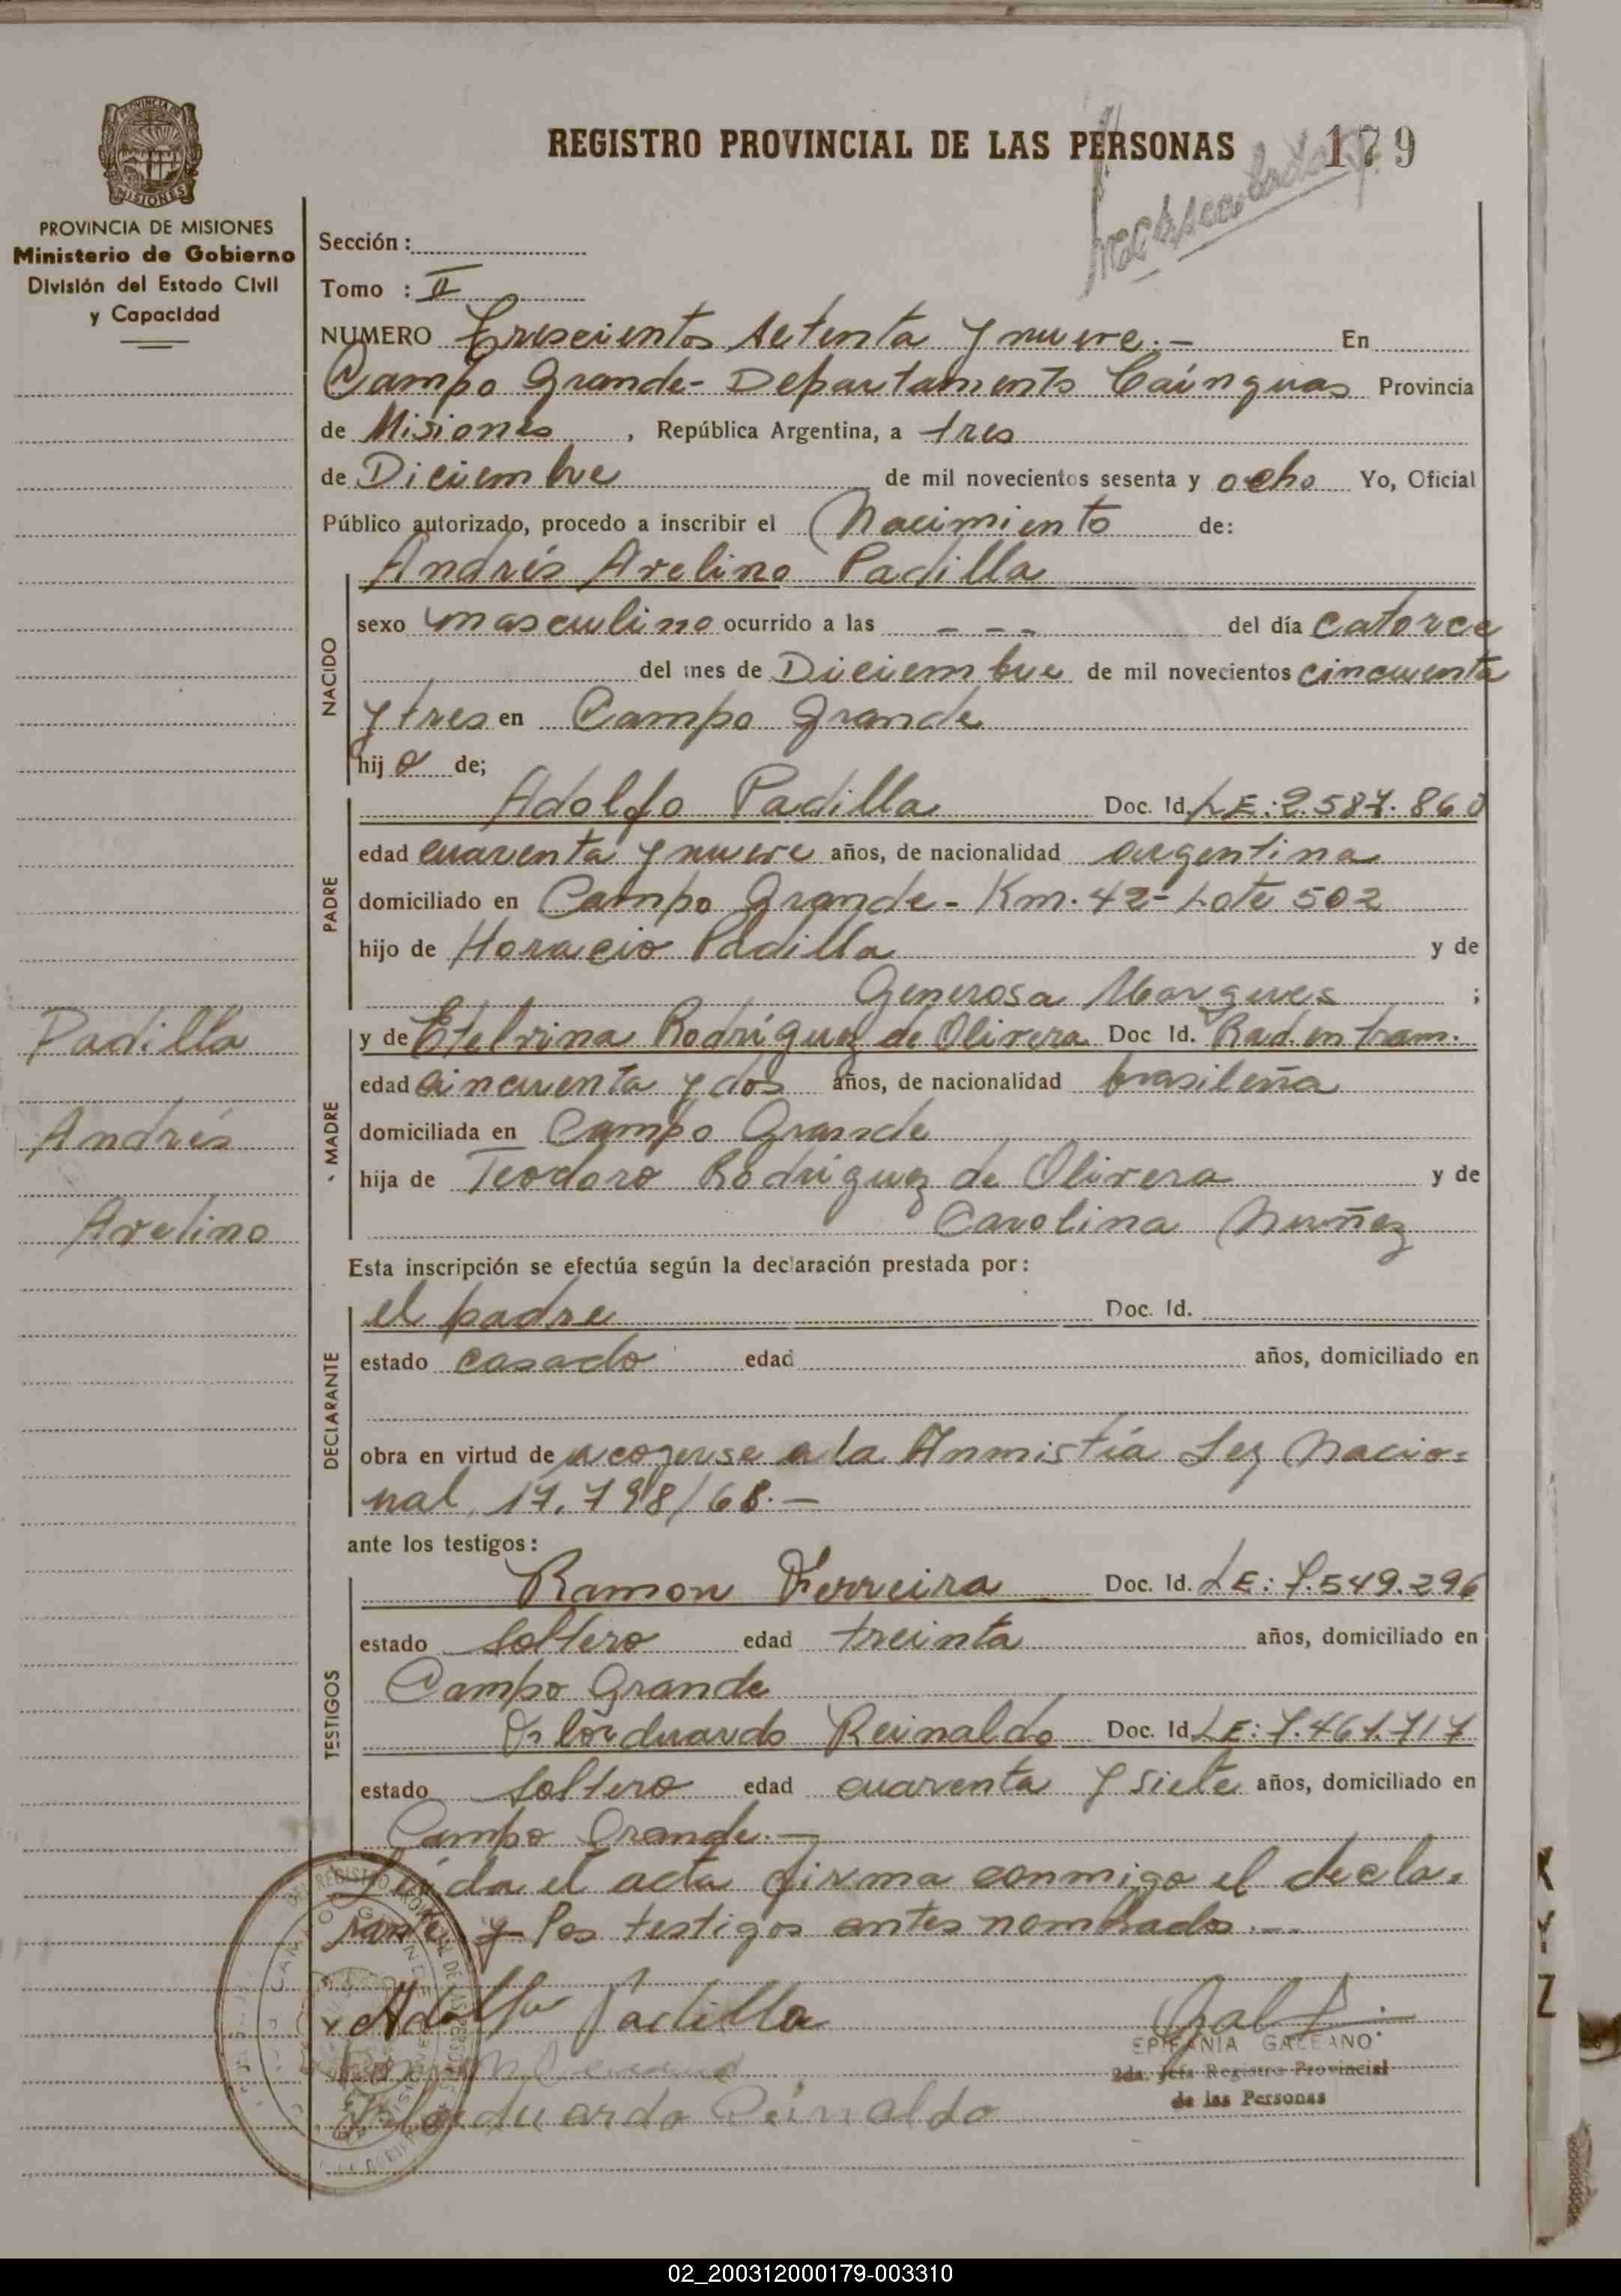 REGISTRO PROVINCIAL DE LAS PERSONAS 179
PROVINCIA DE MISIONES
MISIONES
PROVINCIA DE MISIONES
Ministerio de Gobierno
División del Estado Civil
y Capacidad
Sección :
Tomo : II
NUMERO Trescientos setenta y nueve.- En
Campo Grande- Departamento Caínguas Provincia
de Misiones , República Argentina, a tres
de Diciembre de mil novecientos sesenta y ocho Yo, Oficial
Público autorizado, procedo a inscribir el Nacimiento de:
Andrés Avelino Padilla
NACIDO
sexo masculino ocurrido a las - - - del día catorce
del mes de Diciembre de mil novecientos cincuenta
y tres en Campo Grande
hij o de;
PADRE
Adolfo Padilla Doc. Id. LE:2.587.860
edad cuarenta y nueve años, de nacionalidad argentina
domiciliado en Campo Grande - Km. 42- Lote 502
hijo de Horacio Padilla y de
Generosa Margues ;
MADRE
y de Etelvina Rodríguez de Olivera Doc Id. Rad. en tram.
edad cincuenta y dos años, de nacionalidad brasileña
domiciliada en Campo Grande
hija de Teodoro Rodriguez de Olivera y de
Carolina Nuñez
Padilla
Andrés
Avelino
Esta inscripción se efectúa según la declaración prestada por:
DECLARANTE
el padre Doc. Id.
estado casado edad años, domiciliado en
obra en virtud de acogerse a la Anmistía Ley Nacio=
nal 17.798/68.-
ante los testigos:
TESTIGOS
Ramon Ferreira Doc. Id. LE: 7.549.296
estado soltero edad treinta años, domiciliado en
Campo Grande
Reinaldo Doc. Id LE: 7.461.717
estado soltero edad cuarenta y siete años, domiciliado en
Campo Grande.-
Leída el acta firma conmigo el decla=
rante y los testigos antes nombrados.-
Adolfo Padilla
EPIFANIA GALEANO
2da. Jefa Registro Provincial
de las Personas
Reinaldo
X
Y
Z
02_200312000179-003310